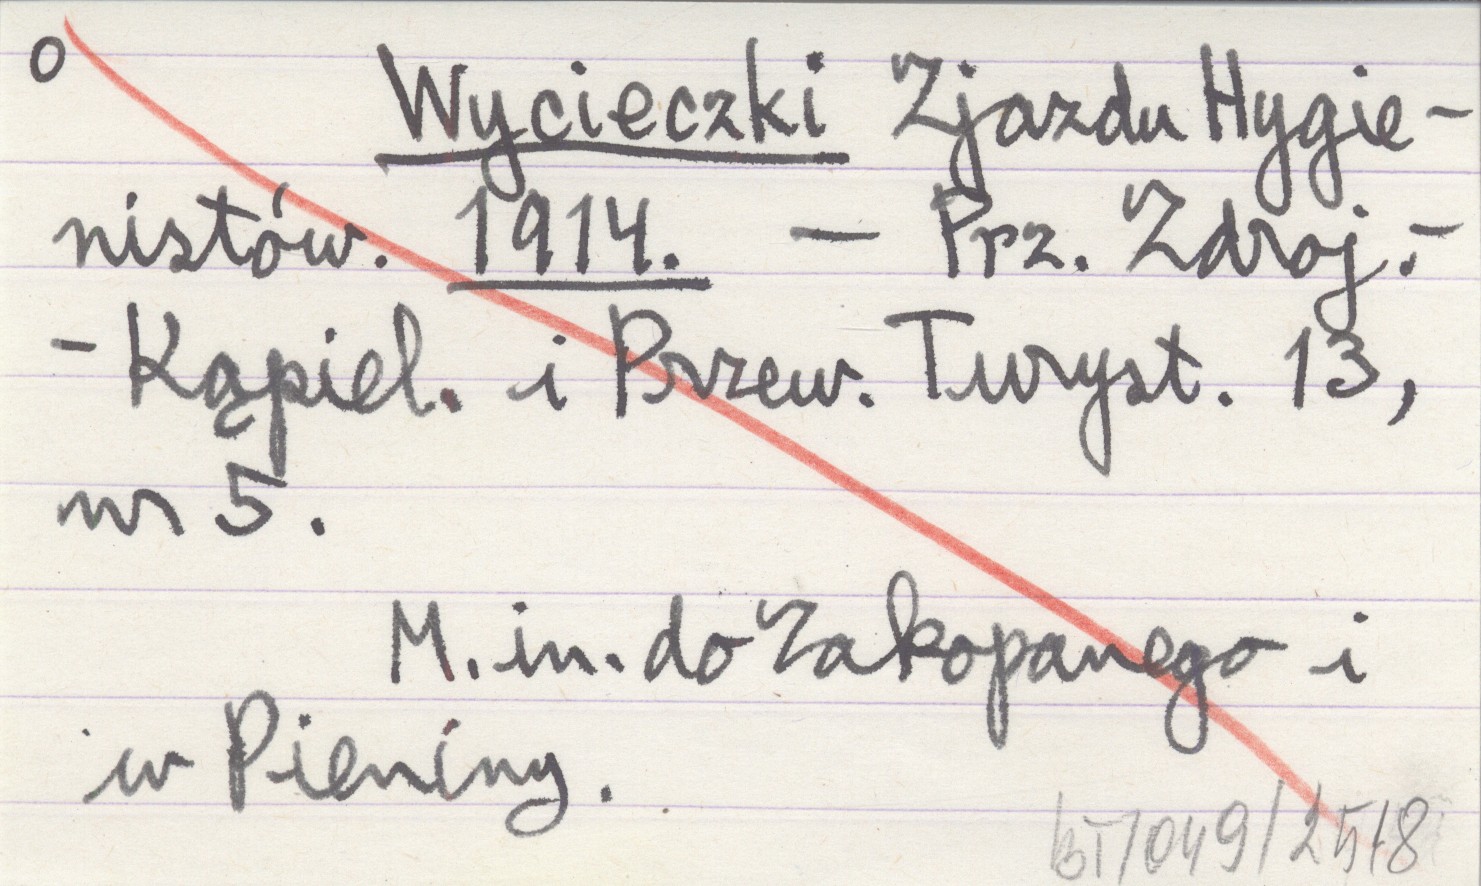 o
Wycieczki Zjazdu Hygie-
nistów. 1914. — Prz. Zdroj.-
-Kąpiel. i Przew. Turyst. 13,
nr 5.
M. in. do Zakopanego i
w Pieniny.